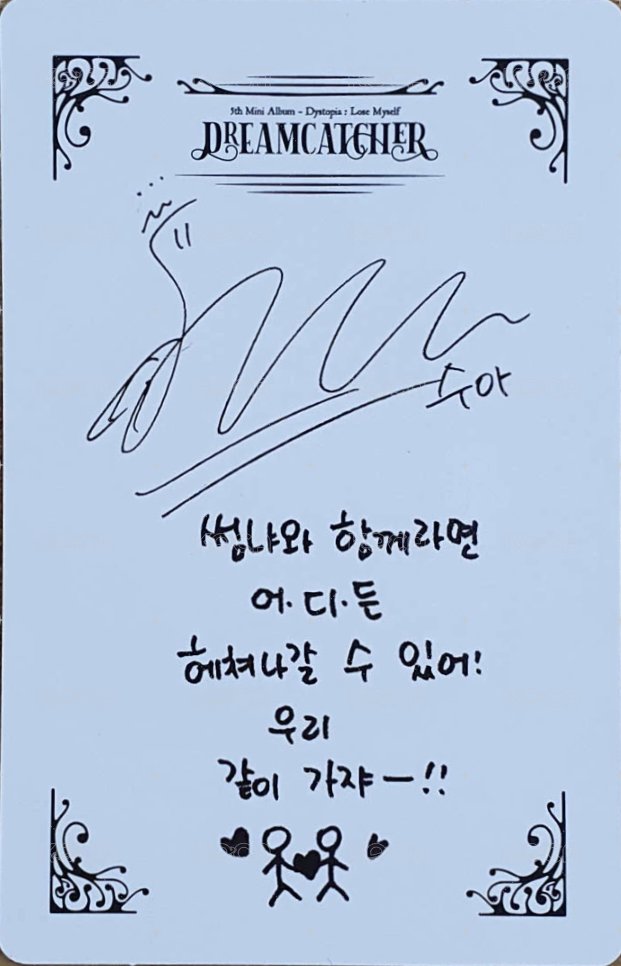 5th Mini Album - Dystopia : Lose Myself
DREAMCATCHER
수아
썸냐와 함께라면
어·디·든
헤쳐나갈 수 있어!
우리
같이 가쟈ー!!